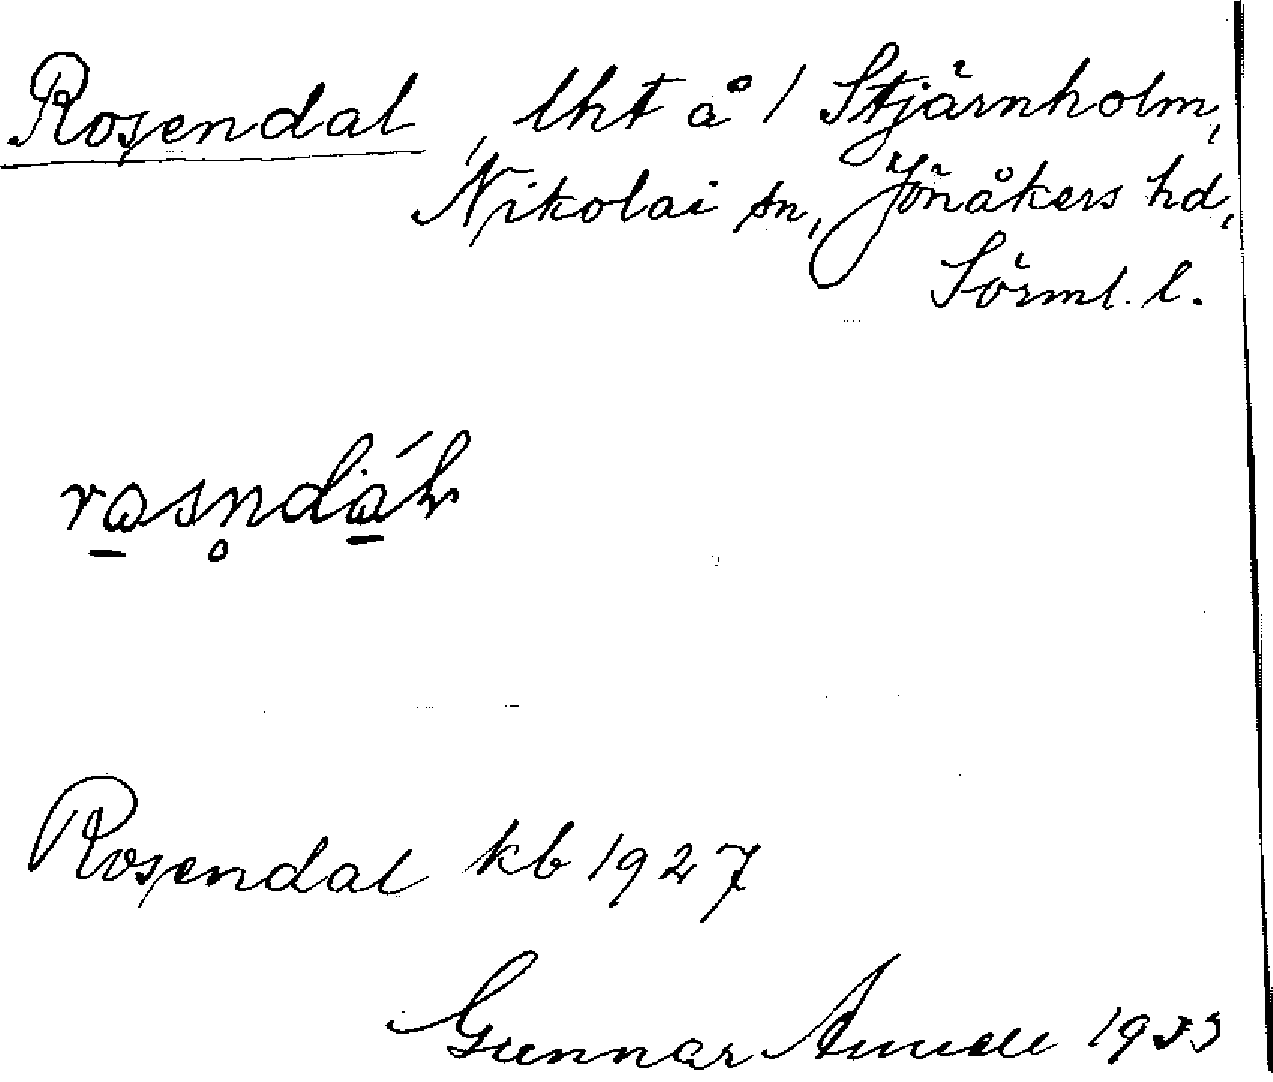 Rosendal, lht å / Stjärnholm,
Nikolai sn, Jönåkers hd,
Sörml. l.
Rosendal kb 1927
Gunnar 1933